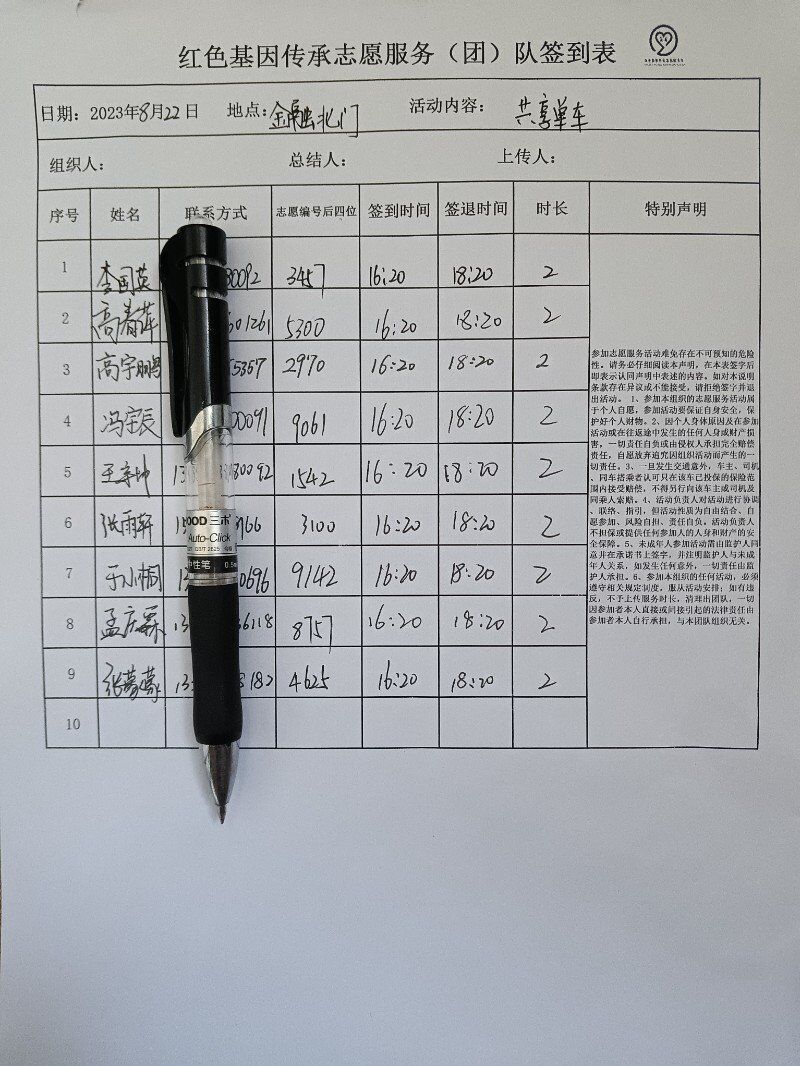 红色基因传承志愿服务（团）队签到表
日期：2023年8月22日 地点：金融北门 活动内容： 共享单车
组织人： 总结人： 上传人：
序号 姓名 联系方式 志愿编号后四位 签到时间 签退时间 时长 特别声明
1 李国英 80092 3457 16:20 18:20 2
2 高春萍 601261 5300 16:20 18:20 2
3 高宇鹏 55357 2970 16:20 18:20 2
4 冯宇辰 00091 9061 16:20 18:20 2
5 王亲坤 13 80092 1542 16:20 18:20 2
6 张雨轩 15 3766 3100 16:20 18:20 2
7 于小桐 0696 9142 16:20 18:20 2
8 孟庆霖 13 36118 8757 16:20 18:20 2
9 张梦 13 8182 4625 16:20 18:20 2
10
参加志愿服务活动难免存在不可预知的危险
性。请务必仔细阅读本声明，在本表签字后
即表示认同声明中表述的内容。如对本说明
条款存在异议或不能接受，请拒绝签字并退
出活动。 1、参加本组织的志愿服务活动属
于个人自愿，参加活动要保证自身安全，保
护好个人财物。2、因个人身体原因及在参加
活动或在往返途中发生的任何人身或财产损
害，一切责任自负或由侵权人承担完全赔偿
责任，自愿放弃追究因组织活动而产生的一
切责任。3、一旦发生交通意外，车主、司机
、同车搭乘者认可只在该车已投保的保险范
围内接受赔偿，不得另行向该车主或司机及
同乘人索赔。4、活动负责人对活动进行协调
、联络、指引，但活动性质为自由结合、自
愿参加、风险自担、责任自负。活动负责人
不担保或提供任何参加人的人身和财产的安
全保障。5、未成年人参加活动需由监护人同
意并在承诺书上签字，并注明监护人与未成
年人关系，如发生任何意外，一切责任由监
护人承担。6、参加本组织的任何活动，必须
遵守相关规定制度，服从活动安排；如有违
反，不予上传服务时长，清理出团队，一切
因参加者本人直接或间接引起的法律责任由
参加者本人自行承担，与本团队组织无关。
OOD三木
Auto-Click
中性笔 0.5m